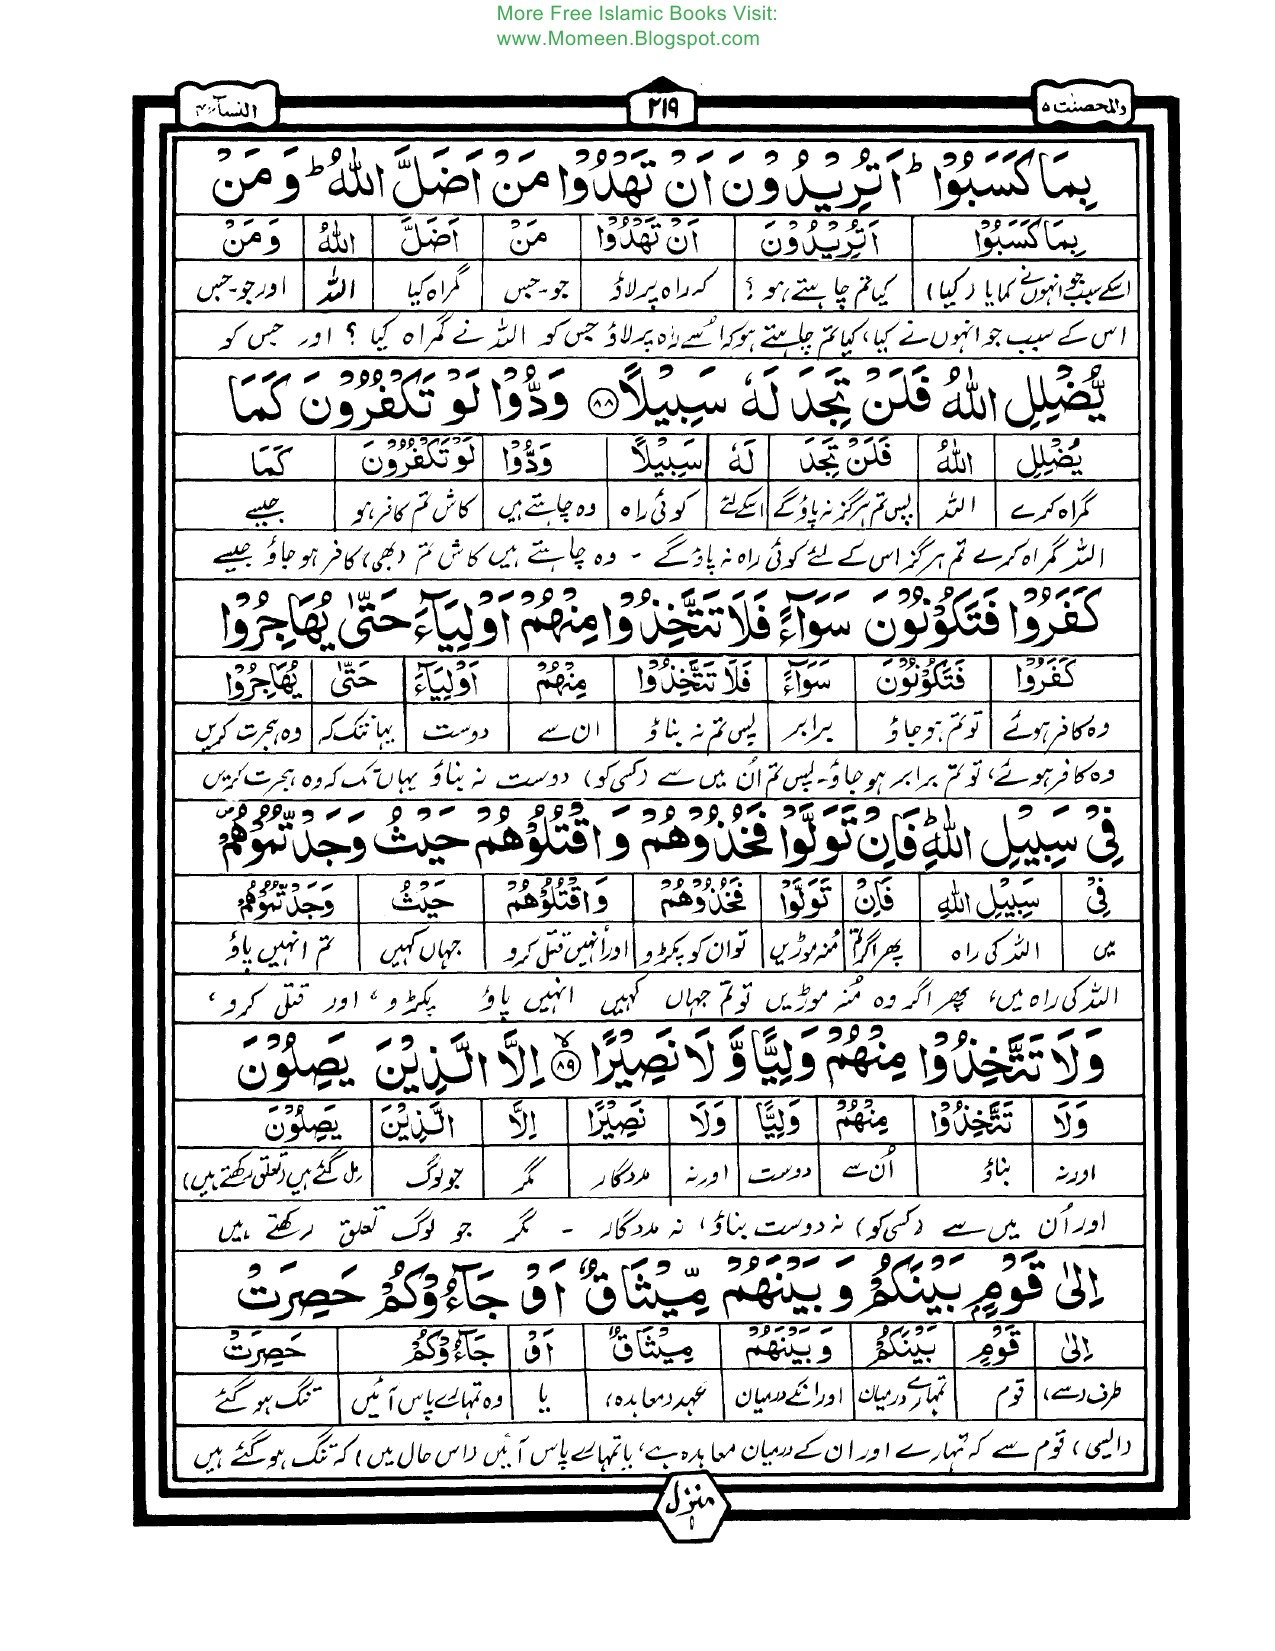 More Free Islamic Books Visit:
www.Momeen.Blogspot.com
والمحصنت ۵ ۲۱۹ النسآء ۴
بِمَا كَسَبُوْا ؕ اَتُرِيْدُوْنَ اَنْ تَهْدُوْا مَنْ اَضَلَّ اللّٰهُ ؕ وَ مَنْ
بِمَا كَسَبُوْا اَتُرِيْدُوْنَ اَنْ تَهْدُوْا مَنْ اَضَلَّ اللّٰهُ وَ مَنْ
اسکے سبب جو انہوں نے کمایا (کیا) کیا تم چاہتے ہو ؟ کہ راہ پر لاؤ جو-جس گمراہ کیا اللہ اور جو-جس
اس کے سبب جو انہوں نے کیا، کیا تم چاہتے ہو کہ اُسے راہ پر لاؤ جس کو اللہ نے گمراہ کیا ؟ اور جس کو
يُّضْلِلِ اللّٰهُ فَلَنْ تَجِدَ لَهٗ سَبِيْلًا ۸۸ وَدُّوْا لَوْ تَكْفُرُوْنَ كَمَا
يُّضْلِلِ اللّٰهُ فَلَنْ تَجِدَ لَهٗ سَبِيْلًا وَدُّوْا لَوْ تَكْفُرُوْنَ كَمَا
گمراہ کرے اللہ پس تم ہرگز نہ پاؤگے اسکے لئے کوئی راہ وہ چاہتے ہیں کاش تم کافر ہو جیسے
اللہ گمراہ کرے تم ہرگز اس کے لئے کوئی راہ نہ پاؤگے - وہ چاہتے ہیں کاش تم (بھی) کافر ہو جاؤ جیسے
كَفَرُوْا فَتَكُوْنُوْنَ سَوَآءً فَلَا تَتَّخِذُوْا مِنْهُمْ اَوْلِيَآءَ حَتّٰى يُهَاجِرُوْا
كَفَرُوْا فَتَكُوْنُوْنَ سَوَآءً فَلَا تَتَّخِذُوْا مِنْهُمْ اَوْلِيَآءَ حَتّٰى يُهَاجِرُوْا
وہ کافر ہوئے تو تم ہو جاؤ برابر پس تم نہ بناؤ ان سے دوست یہانتک کہ وہ ہجرت کریں
وہ کافر ہوئے، تو تم برابر ہو جاؤ-پس تم اُن میں سے (کسی کو) دوست نہ بناؤ یہاں تک کہ وہ ہجرت کریں
فِيْ سَبِيْلِ اللّٰهِ ؕ فَاِنْ تَوَلَّوْا فَخُذُوْهُمْ وَ اقْتُلُوْهُمْ حَيْثُ وَجَدْتُّمُوْهُمْ ۪
فِيْ سَبِيْلِ اللّٰهِ فَاِنْ تَوَلَّوْا فَخُذُوْهُمْ وَ اقْتُلُوْهُمْ حَيْثُ وَجَدْتُّمُوْهُمْ
میں اللہ کی راہ پھر اگر منہ موڑیں تو ان کو پکڑو اور انہیں قتل کرو جہاں کہیں تم انہیں پاؤ
اللہ کی راہ میں، پھر اگر وہ منہ موڑیں تو تم جہاں کہیں انہیں پاؤ پکڑو، اور قتل کرو،
وَلَا تَتَّخِذُوْا مِنْهُمْ وَلِيًّا وَّ لَا نَصِيْرًا ۸۹ اِلَّا الَّذِيْنَ يَصِلُوْنَ
وَلَا تَتَّخِذُوْا مِنْهُمْ وَلِيًّا وَلَا نَصِيْرًا اِلَّا الَّذِيْنَ يَصِلُوْنَ
اور نہ بناؤ اُن سے دوست اور نہ مددگار مگر جو لوگ مل گئے ہیں (تعلق رکھتے ہیں)
اور اُن میں سے (کسی کو) نہ دوست بناؤ، نہ مددگار - مگر جو لوگ تعلق رکھتے ہیں
اِلٰى قَوْمٍۢ بَيْنَكُمْ وَ بَيْنَهُمْ مِّيْثَاقٌ اَوْ جَآءُوْكُمْ حَصِرَتْ
اِلٰى قَوْمٍ بَيْنَكُمْ وَ بَيْنَهُمْ مِيْثَاقٌ اَوْ جَآءُوْكُمْ حَصِرَتْ
طرف (سے) قوم تمہارے درمیان اور انکے درمیان عہد (معاہدہ) یا وہ تمہارے پاس آئیں تنگ ہو گئے
(ایسی) قوم سے کہ تمہارے اور ان کے درمیان معاہدہ ہے، یا تمہارے پاس آئیں (اس حال میں) کہ تنگ ہو گئے ہیں
منزل ۱